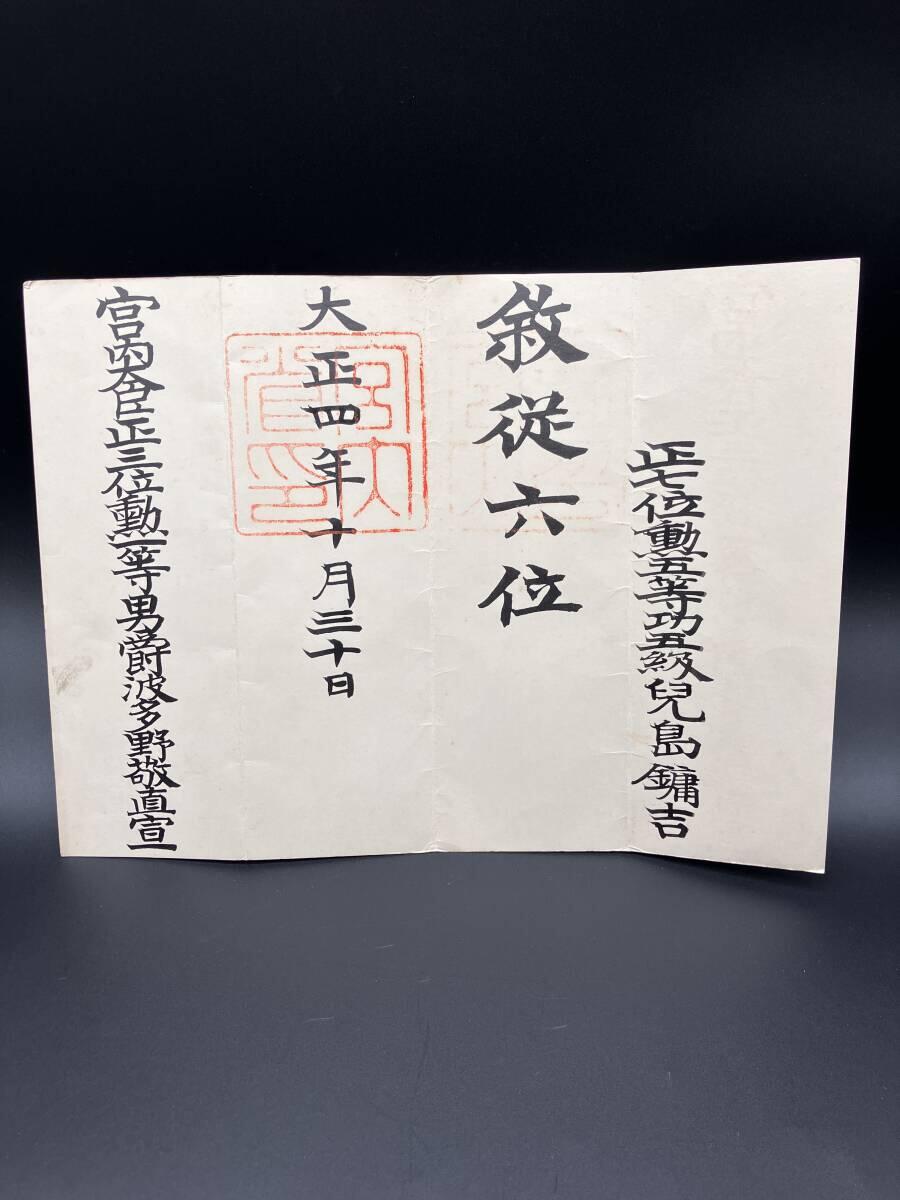 正七位勲五等功五級兒島鏞吉
敘從六位
大正四年十月三十日
宮内省印
宮内大臣正三位勲一等男爵波多野敬直宣